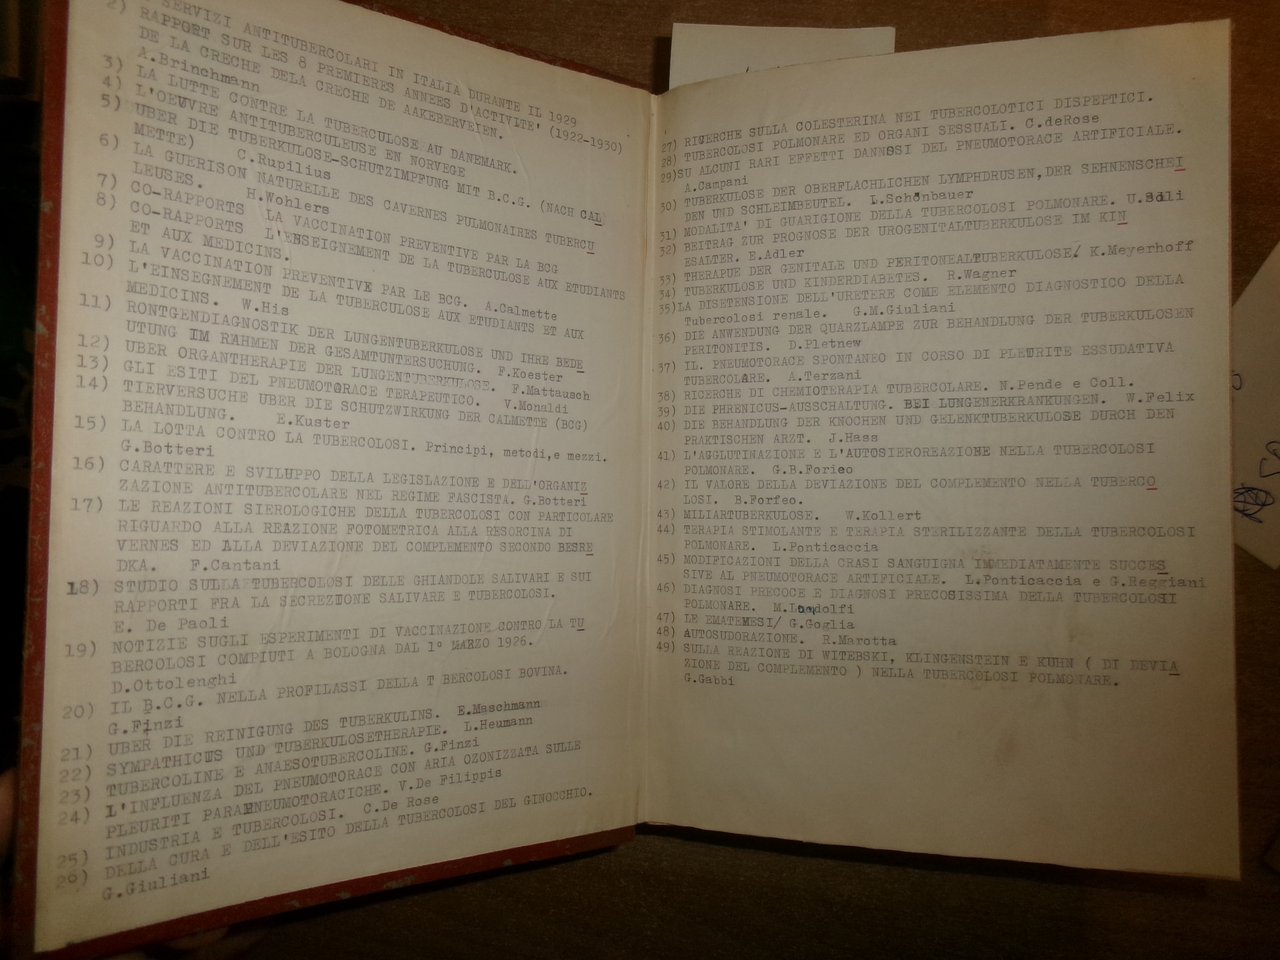 SERVIZI ANTITUBERCOLARI IN ITALIA DURANTE IL 1929
2) RAPPORT SUR LES 8 PREMIERES ANNEES D'ACTIVITE' (1922-1930)
DE LA CRECHE DELA CRECHE DE AAKEBERVEIEN.
A.Brinchmann
3) LA LUTTE CONTRE LA TUBERCULOSE AU DANEMARK.
4) L'OEUVRE ANTITUBERCULEUSE EN NORVEGE
5) UBER DIE TUBERKULOSE-SCHUTZIMPFUNG MIT B.C.G. (NACH CAL
METTE) C.Rupilius
6) LA GUERISON NATURELLE DES CAVERNES PULMONAIRES TUBERCU
LEUSES. H.Wohlers
7) CO-RAPPORTS LA VACCINATION PREVENTIVE PAR LA BCG
8) CO-RAPPORTS L'ENSEIGNEMENT DE LA TUBERCULOSE AUX ETUDIANTS
ET AUX MEDICINS.
9) LA VACCINATION PREVENTIVE PAR LE BCG. A.Calmette
10) L'EINSEGNEMENT DE LA TUBERCULOSE AUX ETUDIANTS ET AUX
MEDICINS. W.His
11) RONTGENDIAGNOSTIK DER LUNGENTUBERKULOSE UND IHRE BEDE
UTUNG IM RAHMEN DER GESAMTUNTERSUCHUNG. F.Koester
12) UBER ORGANTHERAPIE DER LUNGENTUBERKULOSE. F.Mattausch
13) GLI ESITI DEL PNEUMOTORACE TERAPEUTICO. V.Monaldi
14) TIERVERSUCHE UBER DIE SCHUTZWIRKUNG DER CALMETTE (BCG)
BEHANDLUNG. E.Kuster
15) LA LOTTA CONTRO LA TUBERCOLOSI. Principi, metodi,e mezzi.
G.Botteri
16) CARATTERE E SVILUPPO DELLA LEGISLAZIONE E DELL'ORGANIZ
ZAZIONE ANTITUBERCOLARE NEL REGIME FASCISTA. G.Botteri
17) LE REAZIONI SIEROLOGICHE DELLA TUBERCOLOSI CON PARTICOLARE
RIGUARDO ALLA REAZIONE FOTOMETRICA ALLA RESORCINA DI
VERNES ED ALLA DEVIAZIONE DEL COMPLEMENTO SECONDO BESRE
DKA. F.Cantani
18) STUDIO SULLA TUBERCOLOSI DELLE GHIANDOLE SALIVARI E SUI
RAPPORTI FRA LA SECREZIONE SALIVARE E TUBERCOLOSI.
E. De Paoli
19) NOTIZIE SUGLI ESPERIMENTI DI VACCINAZIONE CONTRO LA TU
BERCOLOSI COMPIUTI A BOLOGNA DAL 1° MARZO 1926.
D.Ottolenghi
20) IL B.C.G. NELLA PROFILASSI DELLA T BERCOLOSI BOVINA.
G.Finzi
21) UBER DIE REINIGUNG DES TUBERKULINS. E.Maschmann
22) SYMPATHICUS UND TUBERKULOSETHERAPIE. L.Heumann
23) TUBERCOLINE E ANAESOTUBERCOLINE. G.Finzi
24) L'INFLUENZA DEL PNEUMOTORACE CON ARIA OZONIZZATA SULLE
PLEURITI PARAPNEUMOTORACICHE. V.De Filippis
25) INDUSTRIA E TUBERCOLOSI. C.De Rose
26) DELLA CURA E DELL'ESITO DELLA TUBERCOLOSI DEL GINOCCHIO.
G.Giuliani
27) RICERCHE SULLA COLESTERINA NEI TUBERCOLOTICI DISPEPTICI.
28) TUBERCOLOSI POLMONARE ED ORGANI SESSUALI. C.deRose
29)SU ALCUNI RARI EFFETTI DANNOSI DEL PNEUMOTORACE ARTIFICIALE.
A.Campani
30) TUBERKULOSE DER OBERFLACHLICHEN LYMPHDRUSEN,DER SEHNENSCHEI
DEN UND SCHLEIMBEUTEL. L.Schönbauer
31) MODALITA' DI GUARIGIONE DELLA TUBERCOLOSI POLMONARE. U.Soli
32) BEITRAG ZUR PROGNOSE DER UROGENITALTUBERKULOSE IM KIN
ESALTER. E.Adler
33) THERAPUE DER GENITALE UND PERITONEALTUBERKULOSE/ K.Meyerhoff
34) TUBERKULOSE UND KINDERDIABETES. R.Wagner
35)LA DISETENSIONE DELL'URETERE COME ELEMENTO DIAGNOSTICO DELLA
Tubercolosi renale. G.M.Giuliani
36) DIE ANWENDUNG DER QUARZLAMPE ZUR BEHANDLUNG DER TUBERKULOSEN
PERITONITIS. D.Pletnew
37) IL PNEUMOTORACE SPONTANEO IN CORSO DI PLEURITE ESSUDATIVA
TUBERCOLARE. A.Terzani
38) RICERCHE DI CHEMIOTERAPIA TUBERCOLARE. N.Pende e Coll.
39) DIE PHRENICUS-AUSSCHALTUNG. BEI LUNGENERKRANKUNGEN. W.Felix
40) DIE BEHANDLUNG DER KNOCHEN UND GELENKTUBERKULOSE DURCH DEN
PRAKTISCHEN ARZT. J.Hass
41) L'AGGLUTINAZIONE E L'AUTOSIEROREAZIONE NELLA TUBERCOLOSI
POLMONARE. G.B.Forieo
42) IL VALORE DELLA DEVIAZIONE DEL COMPLEMENTO NELLA TUBERCO
LOSI. B.Forfeo.
43) MILIARTUBERKULOSE. W.Kollert
44) TERAPIA STIMOLANTE E TERAPIA STERILIZZANTE DELLA TUBERCOLOSI
POLMONARE. L.Ponticaccia
45) MODIFICAZIONI DELLA CRASI SANGUIGNA IMMEDIATAMENTE SUCCES
SIVE AL PNEUMOTORACE ARTIFICIALE. L.Ponticaccia e G.Reggiani
46) DIAGNOSI PRECOCE E DIAGNOSI PRECOSISSIMA DELLA TUBERCOLOSI
POLMONARE. M.Landolfi
47) LE EMATEMESI/ G.Goglia
48) AUTOSUDORAZIONE. R.Marotta
49) SULLA REAZIONE DI WITEBSKI, KLINGENSTEIN E KUHN ( DI DEVIA
ZIONE DEL COMPLEMENTO ) NELLA TUBERCOLOSI POLMONARE.
G.Gabbi